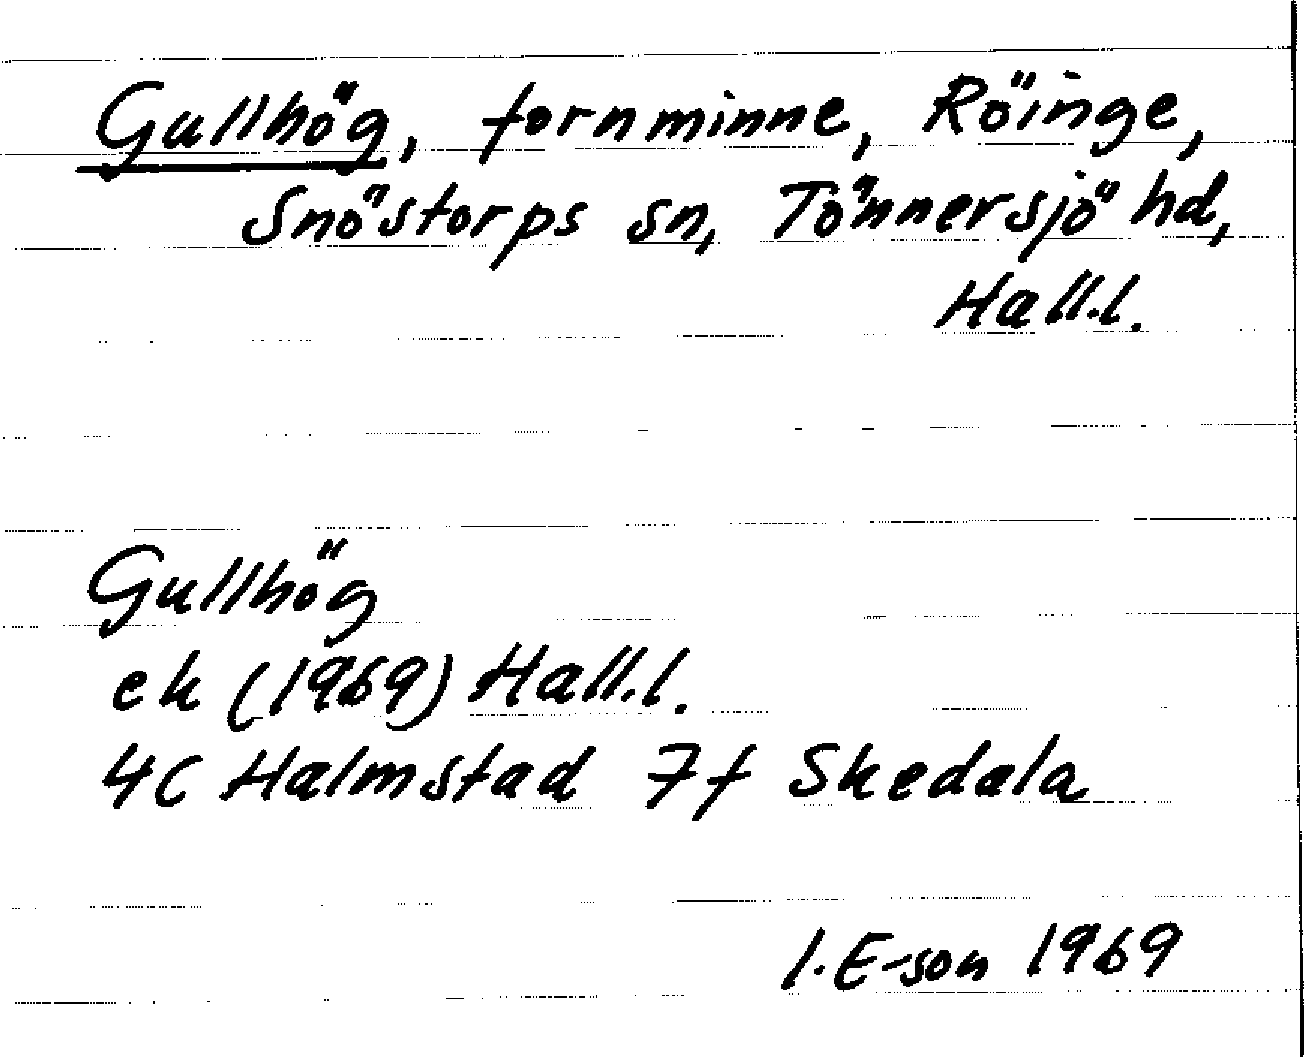 Gullhög, fornminne, Röinge,
Snöstorps sn, Tönnersjö hd,
Hall.l.
Gullhög
ek (1969) Hall.l.
4C Halmstad 7f Skedala
I. E-son 1969